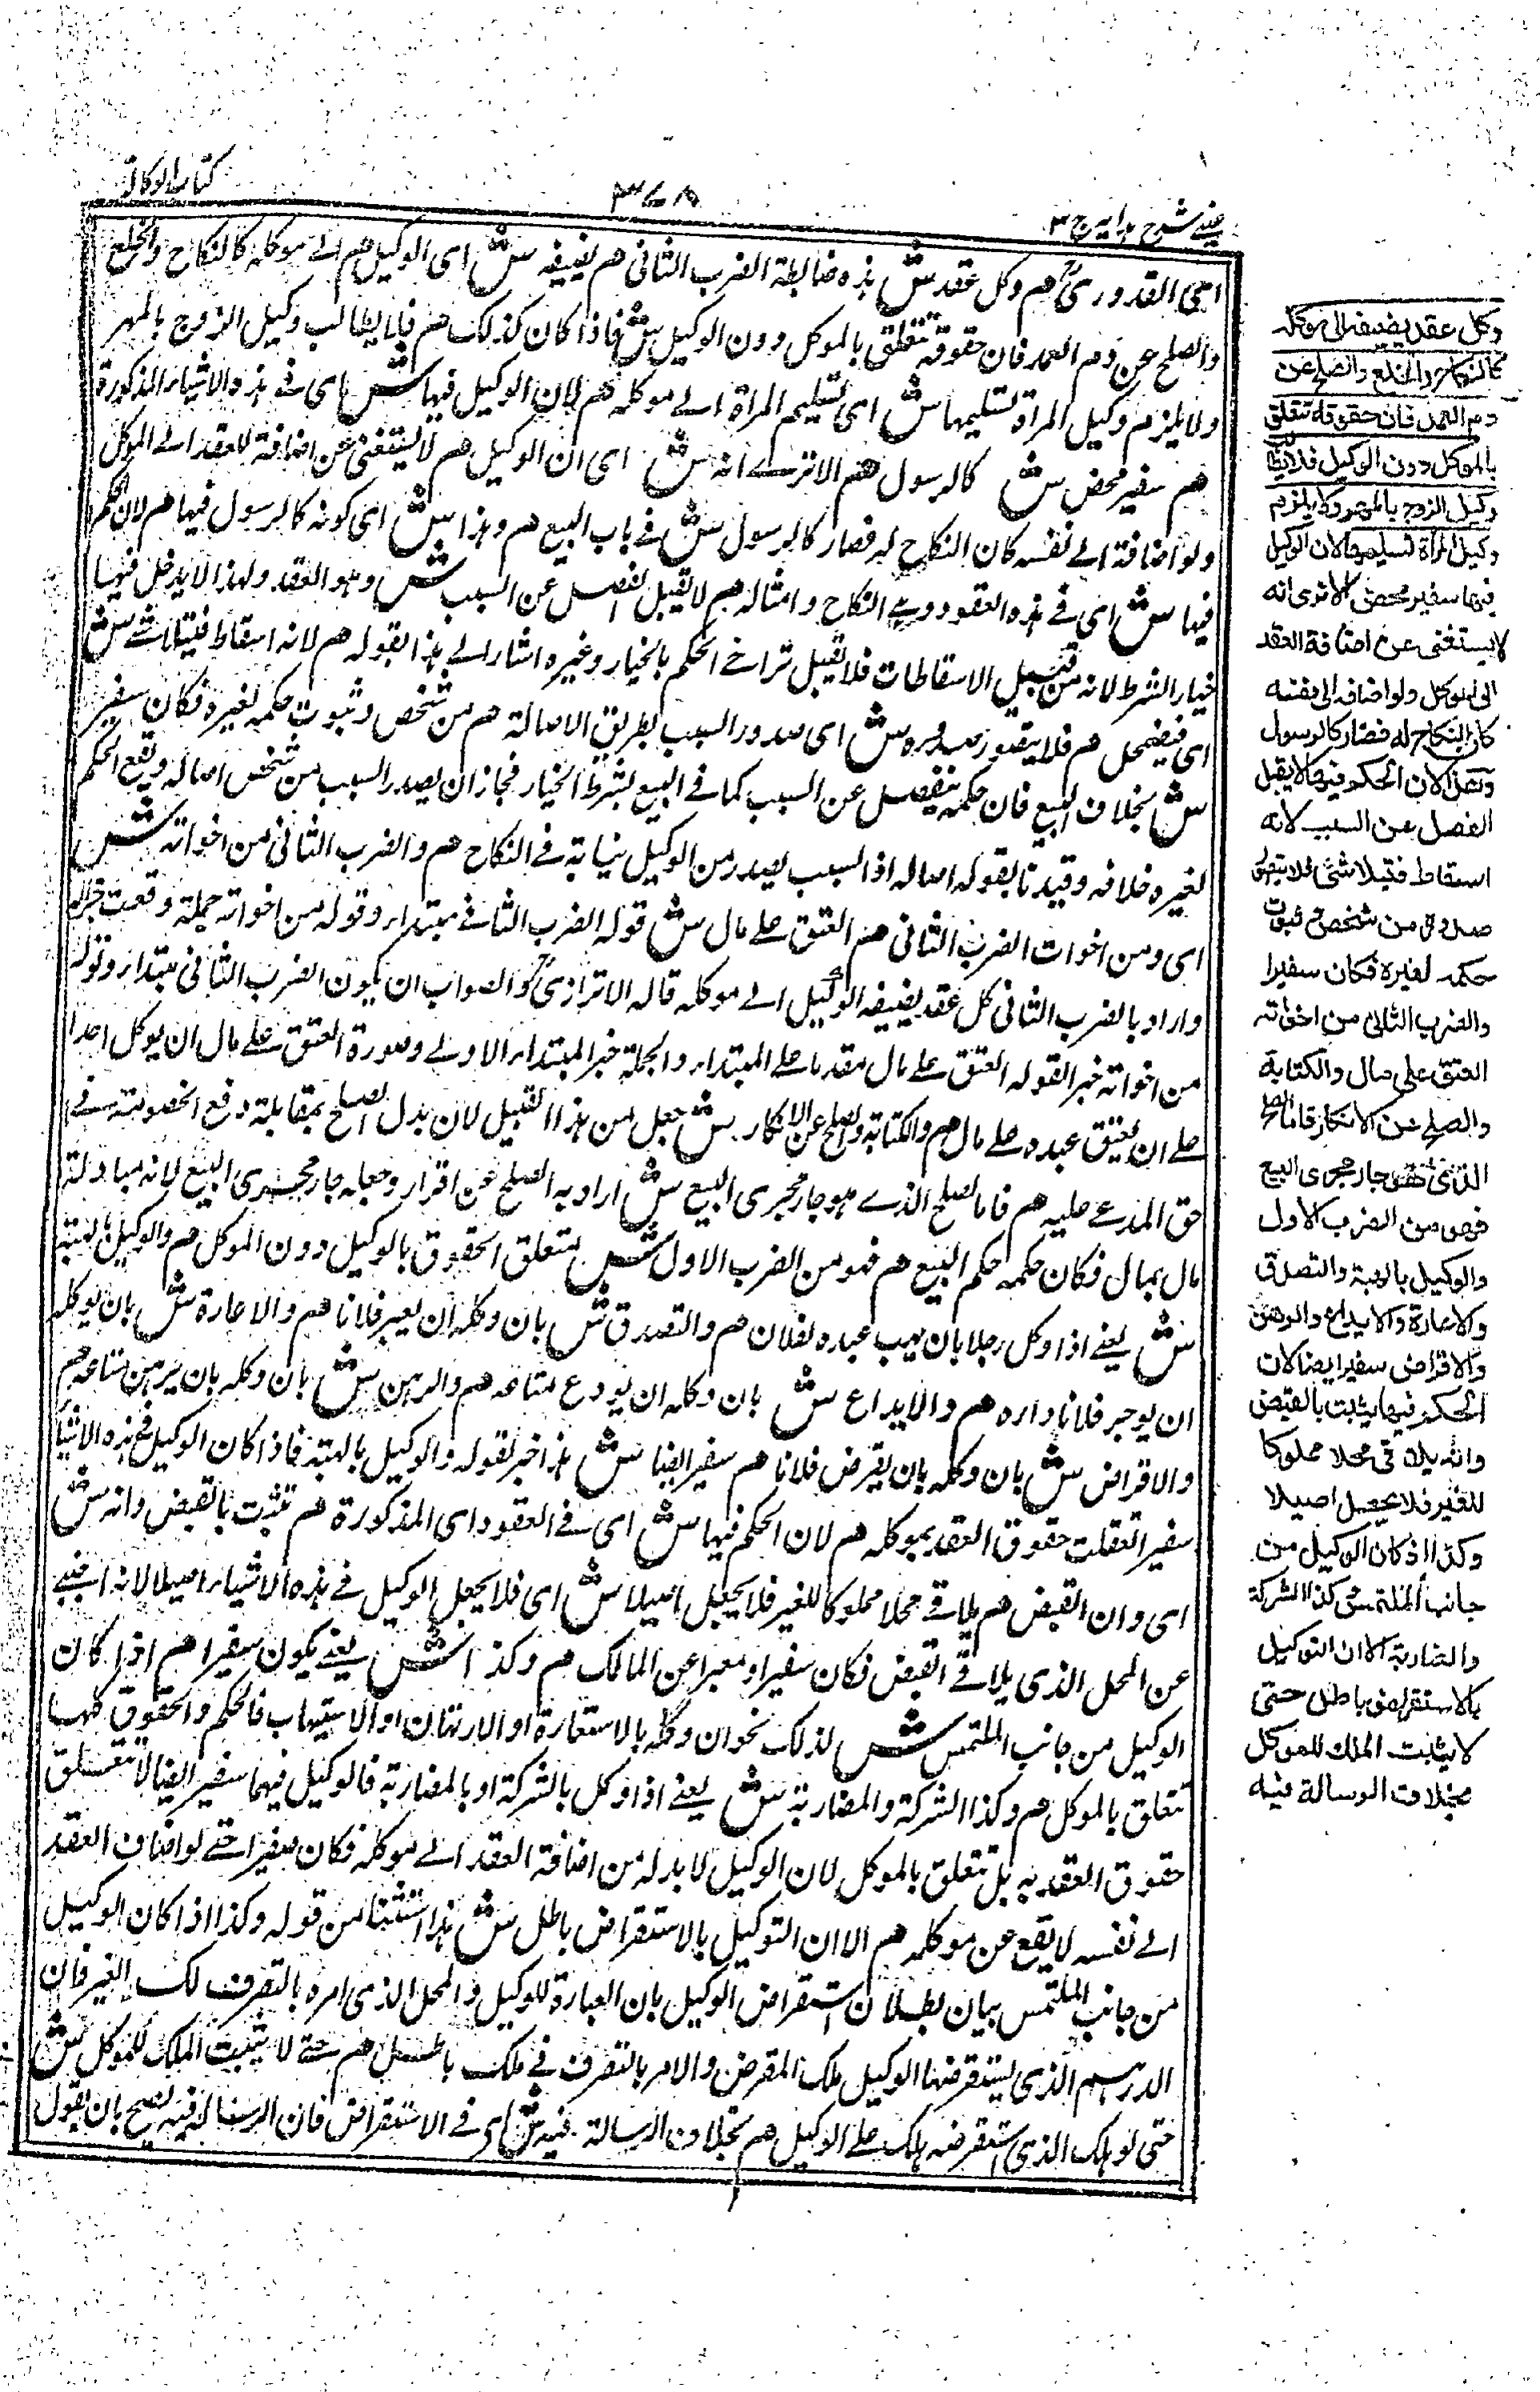 عینی شرح ہدایہ ج ۳
۳۷۸
کتاب الوکالۃ
ای القدوری م وکل عقد ش ہذہ ضابطۃ الضرب الثانی م یضیفہ ش ای الوکیل م الے موکلہ کالنکاح والخلع
والصلح عن دم العمد فان حقوقہ تتعلق بالموکل دون الوکیل ش فاذا کان کذلک م فلا یطالب وکیل الزوج بالمہر
ولا یلزم وکیل المراۃ تسلیمہا ش ای تسلیم المراۃ الے موکلہ م لان الوکیل فیہا ش ای فے ہذہ الاشیاء المذکورۃ
م سفیر محض ش کالرسول م الا ترے انہ ش ای ان الوکیل م لا یستغنی عن اضافۃ العقد الے الموکل
ولو اضافہ الے نفسہ کان النکاح لہ فصار کالرسول ش فے باب البیع م وہذا ش ای کونہ کالرسول فیہا م لان الحکم
فیہا ش ای فے ہذہ العقود وہے النکاح وامثالہ م لا یقبل الفصل عن السبب ش وہو العقد ولہذا لا یدخل فیہا
خیار الشرط لانہ من قبیل الاسقاطات فلا یقبل تراخے الحکم بالخیار وغیرہ اشار الے ہذا بقولہ م لانہ اسقاط فیتلاشے ش
ای فیضمحل م فلا یتصور صدورہ ش ای صدور السبب بطریق الاصالۃ م من شخص وثبوت حکمہ لغیرہ فکان سفیرا
ش بخلاف البیع فان حکمہ ینفصل عن السبب کما فے البیع بشرط الخیار فجاز ان یصدر السبب من شخص اصالہ ویقع الحکم
لغیرہ خلافہ وقیدنا بقولہ اصالہ اذ السبب یصدر من الوکیل نیابۃ فے النکاح م والضرب الثانی من اخواتہ ش
ای ومن اخوات الضرب الثانی م العتق علے مال ش قولہ الضرب الثانے مبتداء وقولہ من اخواتہ جملۃ وقعت خبرا
واراد بالضرب الثانی کل عقد یضیفہ الوکیل الے موکلہ قالہ الاترازی والصواب ان یکون الضرب الثانی مبتداء وقولہ
من اخواتہ خبر لقولہ العتق علے مال مقدما علے المبتداء والجملۃ خبر المبتداء الاولے وصورۃ العتق علے مال ان یوکل احدا
علے ان یعتق عبدہ علے مال م والکتابۃ والصلح عن الانکار ش جعل من ہذا القبیل لان بدل الصلح بمقابلۃ دفع الخصومۃ فے
حق المدعے علیہ م فاما الصلح الذے ہو جار مجری البیع ش اراد بہ الصلح عن اقرار وجعلہ جار مجری البیع لانہ مبادلۃ
مال بمال فکان حکمہ حکم البیع م فہو من الضرب الاول ش یتعلق الحقوق بالوکیل دون الموکل م والوکیل بالہبۃ
ش یعنے اذا وکل رجلا بان یہب عبدہ لفلان م والتصدق ش بان وکلہ ان یعیر فلانا م والاعارۃ ش بان یوکلہ
ان یوجر فلانا دارہ م والایداع ش بان وکلہ ان یودع متاعہ م والرہن ش بان وکلہ بان یرہن متاعہ م
والاقراض ش بان وکلہ بان یقرض فلانا م سفیر ایضا ش ہذا خبر لقولہ والوکیل بالہبۃ فاذا کان الوکیل فے ہذہ الاشیاء
سفیرا تعقلت حقوق العقد بموکلہ م لان الحکم فیہا ش ای فے العقود ای المذکورۃ م تثبت بالقبض وانہ ش
ای وان القبض م یلاقے محلا مملوکا للغیر فلا یجعل اصیلا ش ای فلا یجعل الوکیل فے ہذہ الاشیاء اصیلا لانہ اجنبے
عن المحل الذی یلاقے القبض فکان سفیرا ومعبرا عن المالک م وکذا ش یعنے یکون سفیرا م اذا کان
الوکیل من جانب الملتمس ش لذلک نحو ان وکلہ بالاستعارۃ او الارتہان او الاستیہاب فالحکم والحقوق کلہا
تتعلق بالموکل م وکذا الشرکۃ والمضاربۃ ش یعنے اذا وکل بالشرکۃ او بالمضاربۃ فالوکیل فیہما سفیر ایضا لا تتعلق
حقوق العقد بہ بل تتعلق بالموکل لان الوکیل لا بد لہ من اضافۃ العقد الے موکلہ فکان سفیرا حتے لو اضاف العقد
الے نفسہ لا یقع عن موکلہ م الا ان التوکیل بالاستقراض باطل ش ہذا استثنا من قولہ وکذا اذا کان الوکیل
من جانب الملتمس بیان بطلان استقراض الوکیل بان العبارۃ للوکیل والمحل الذی امرہ بالتصرف ملک الغیر فان
الدراہم الذی یستقرضہا الوکیل ملک المقرض والامر بالتصرف فے ملک باطل م حتے لا یثبت الملک للموکل ش
حتی لو ہلک الذی استقرضہ ہلک علے الوکیل م بخلاف الرسالۃ فیہ ش ای فے الاستقراض فان الرسالۃ فیہ یصح بان یقول
وكل عقد يضيفه الى موكله
كالنكاح والخلع والصلح عن
دم العمد فان حقوقه تتعلق
بالموكل دون الوكيل فلا يطالب
وكيل الزوج بالمهر ولا يلزم
وكيل المرأة تسليمها لان الوكيل
فيها سفير محض الا ترى انه
لا يستغنى عن اضافة العقد
الى الموكل ولو اضافه الى نفسه
كان النكاح له فصار كالرسول
وهذا لان الحكم فيها لا يقبل
الفصل عن السبب لانه
اسقاط فيتلاشى فلا يتصور
صدوره من شخص وثبوت
حكمه لغيره فكان سفيرا
والضرب الثانى من اخواته
العتق على مال والكتابة
والصلح عن الانكار فاما الصلح
الذى هو جار مجرى البيع
فهو من الضرب الاول
والوكيل بالهبة والتصدق
والاعارة والايداع والرهن
والاقراض سفير ايضا لان
الحكم فيها يثبت بالقبض
وانه يلاقى محلا مملوكا
للغير فلا يجعل اصيلا
وكذا اذا كان الوكيل من
جانب الملتمس وكذا الشركة
والمضاربة الا ان التوكيل
بالاستقراض باطل حتى
لا يثبت الملك للموكل
بخلاف الرسالة فيه